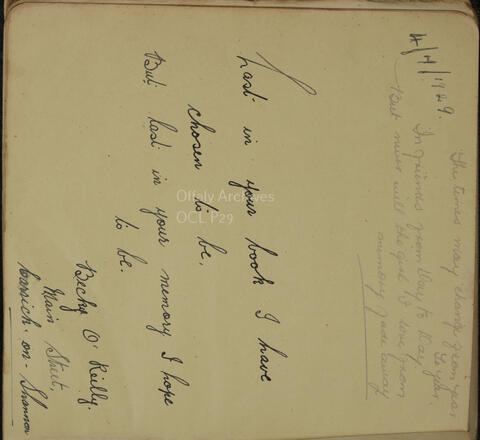 4/4/1929.
The times may change from year
to year,
friends from day to day
But never will the girl love from
memory fade away
Last in your book I have
chosen to be,
But last in your memory I hope
to be.
Becky O'Reilly.
Main Street,
Carrick-on-Shannon
Offaly Archives
OCL P29